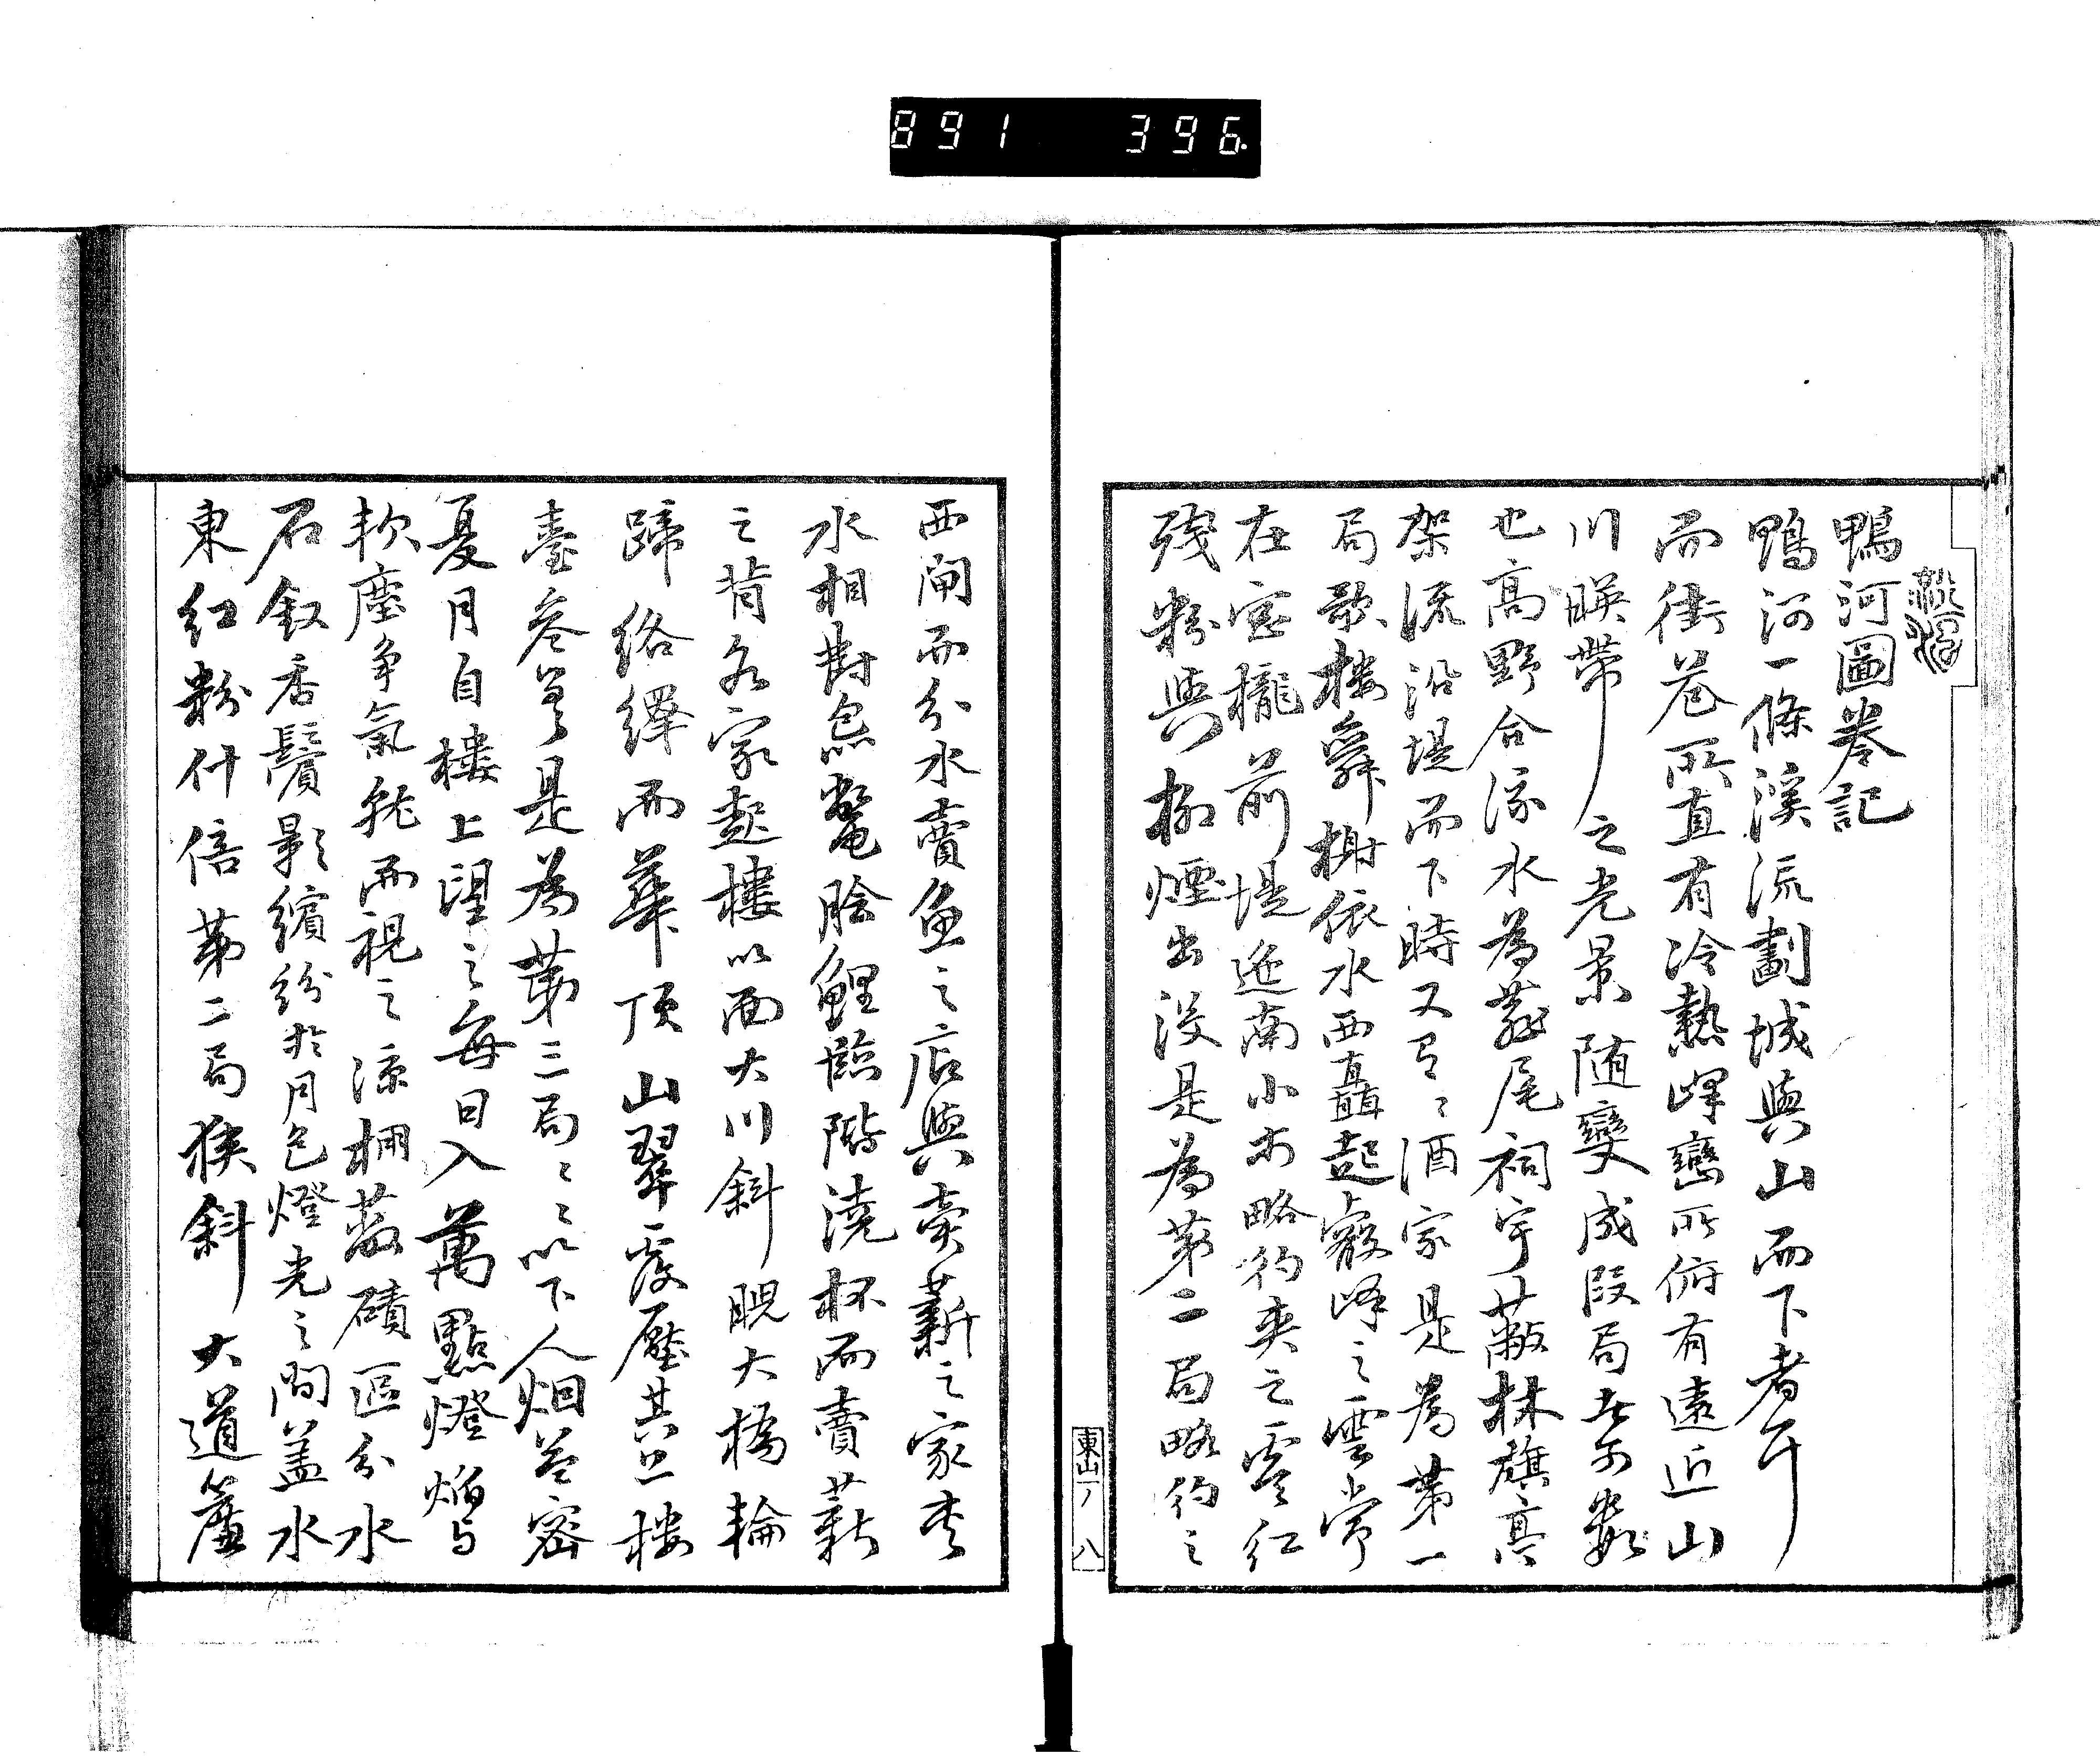 891 396
鴨河圖巻記
鴨河一條溪流劃城與山而下者耳
而街巷所直有冷熱峄巒所俯有遠近山
川暎帶之光景随變成段局者
也高野合流水為尾祠宇蔽林旗亭
架流沿堤而下時又酒家是為第一
局歌樓舞榭依水西矗起叡峰之雲常
在窓櫳前堤迤南小略彴夾之零紅
殘粉與柳煙出没是為第二局略彴之
西閘而分水賣魚之店與賣薪之家夾
水相對炰鼈膾鯉臨階澆杯而賣薪
之背各家起樓以西大川斜睨大橋輪
蹄絡繹而華頂山翠壓其上樓
臺参差是為第三局〻〻以下人烟益密
夏月自樓上望之每日入萬點燈焰与
軟塵争氣就而視之涼棚蔽磧區分水
石釵香鬢影繽紛於月色燈光之間盖水
東紅粉什倍第二局狹斜大道簾
東山一ノ八